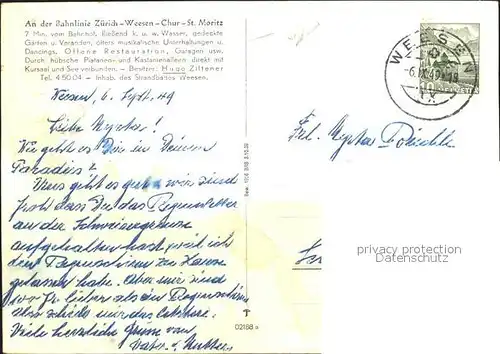 An der Bahnlinie Zürich–Weesen–Chur–St. Moritz
7 Min. vom Bahnhof, fließend k. u. w. Wasser, gedeckte
Gärten u. Veranden, öfters musikalische Unterhaltungen u.
Dancings. Offene Restauration, Garagen usw.
Durch hübsche Platanen- und Kastanienalleen direkt mit
Kursaal und See verbunden. – Besitzer: Hugo Ziltener
Tel. 4 50 04 – Inhab. des Strandbades Weesen.
WEESEN
-6.IX.49 -18
HELVETIA
Weesen, 6. Sept. 49
Liebe Myrtha!
Wie geht es Dir in Deinem
Paradies?
Uns geht es gut wir sind
froh dass Du das Regenwetter
an der Schweizergrenze
aufgehalten hast, weil ich
den Regenschirm zu Hause
gelassen habe. Aber wir sind
100 Fr. lieber als ein Regenschirm
Also schicke mir das
Viele herzliche Grüsse von
Vater u. Mutter
Frl. Myrtha
privacy protection
Datenschutz
02188